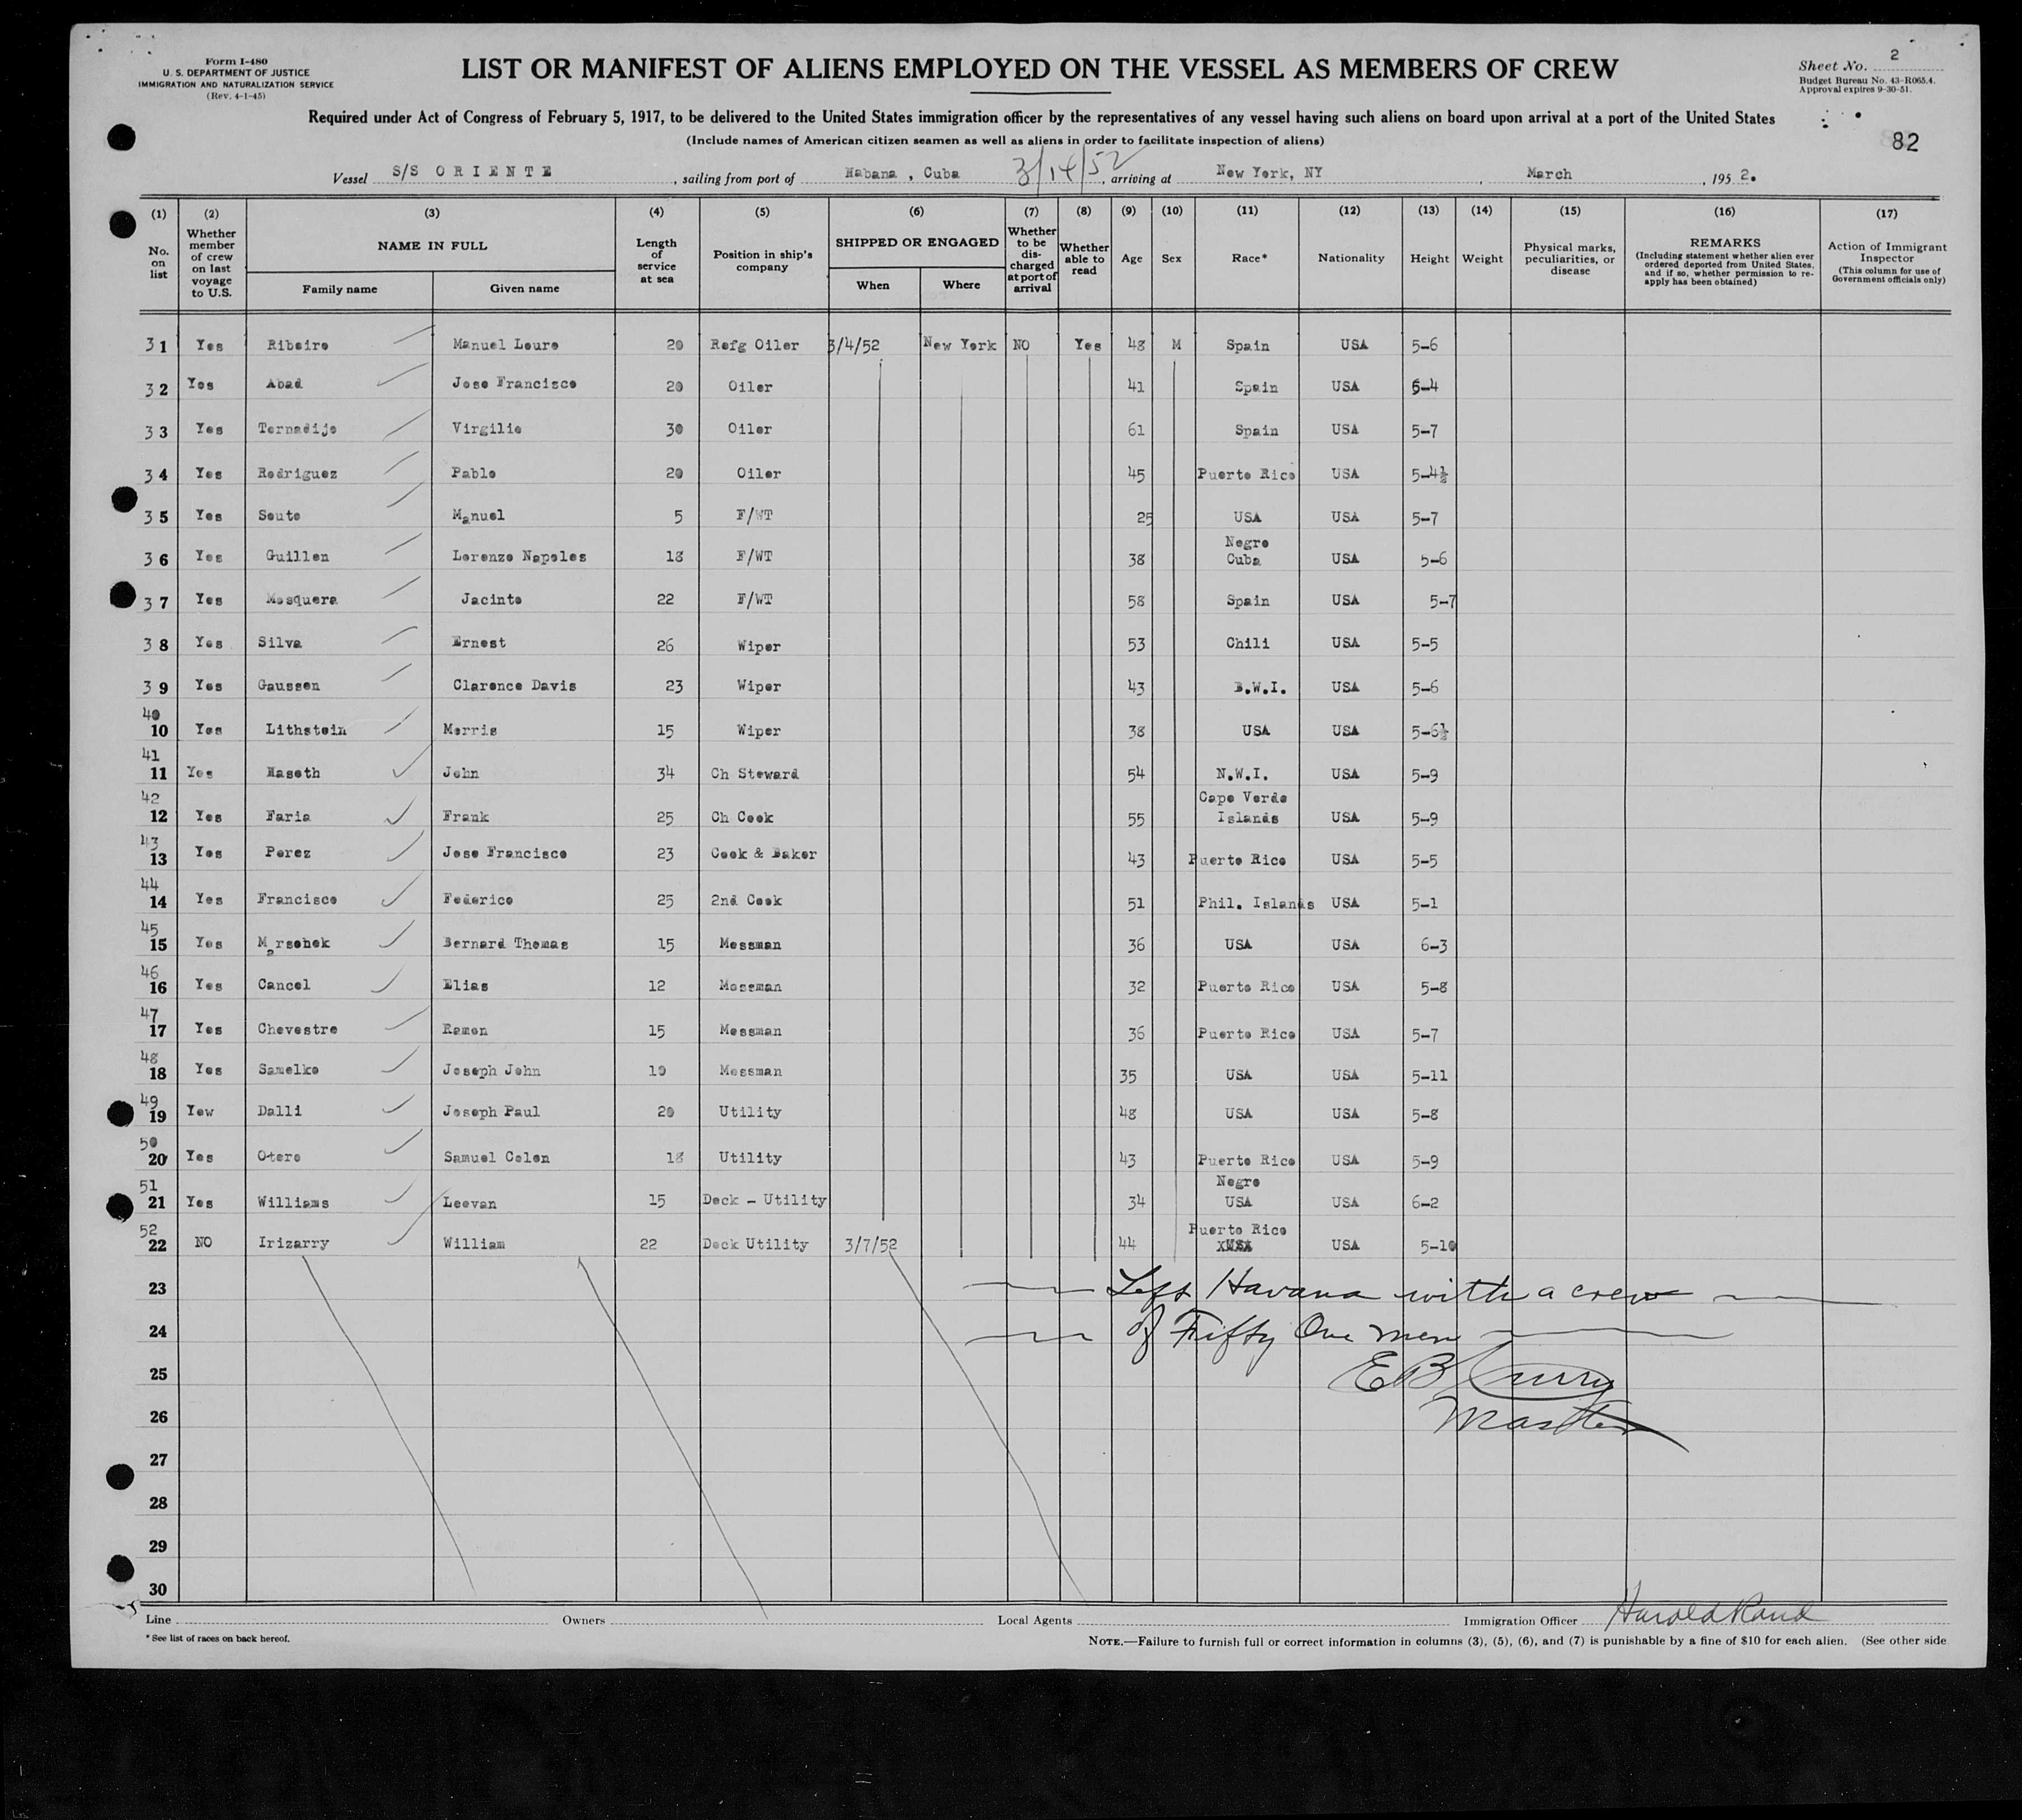 Form I-480
U. S. DEPARTMENT OF JUSTICE
IMMIGRATION AND NATURALIZATION SERVICE
(Rev. 4-1-45)
LIST OR MANIFEST OF ALIENS EMPLOYED ON THE VESSEL AS MEMBERS OF CREW
Sheet No. 2
Budget Bureau No. 43-R065.4.
Approval expires 9-30-51.
Required under Act of Congress of February 5, 1917, to be delivered to the United States immigration officer by the representatives of any vessel having such aliens on board upon arrival at a port of the United States
(Include names of American citizen seamen as well as aliens in order to facilitate inspection of aliens)
82
Vessel S/S ORIENTE, sailing from port of Habana, Cuba 3/14/52, arriving at New York, NY, March, 1952.
(1) (2) (3) (4) (5) (6) (7) (8) (9) (10) (11) (12) (13) (14) (15) (16) (17)
No. on list
Whether member of crew on last voyage to U.S.
NAME IN FULL
Family name
Given name
Length of service at sea
Position in ship's company
SHIPPED OR ENGAGED
When
Where
Whether to be discharged at port of arrival
Whether able to read
Age
Sex
Race*
Nationality
Height
Weight
Physical marks, peculiarities, or disease
REMARKS
(Including statement whether alien ever ordered deported from United States, and if so, whether permission to re-apply has been obtained)
Action of Immigrant Inspector
(This column for use of Government officials only)
31 Yes Ribeiro Manuel Loure 20 Refg Oiler 3/4/52 New York NO Yes 48 M Spain USA 5-6
32 Yes Abad Jose Francisco 20 Oiler 41 Spain USA 5-4
33 Yes Ternadijo Virgilio 30 Oiler 61 Spain USA 5-7
34 Yes Rodriguez Pablo 20 Oiler 45 Puerto Rico USA 5-4½
35 Yes Souto Manuel 5 F/WT 25 USA USA 5-7
36 Yes Guillen Lorenzo Napoles 18 F/WT 38 Negro Cuba USA 5-6
37 Yes Mosquera Jacinto 22 F/WT 58 Spain USA 5-7
38 Yes Silva Ernest 26 Wiper 53 Chili USA 5-5
39 Yes Gaussen Clarence Davis 23 Wiper 43 B.W.I. USA 5-6
40 10 Yes Lithstein Morris 15 Wiper 38 USA USA 5-6½
41 11 Yes Haseth John 34 Ch Steward 54 N.W.I. USA 5-9
42 12 Yes Faria Frank 25 Ch Cook 55 Cape Verde Islands USA 5-9
43 13 Yes Perez Jose Francisco 23 Cook & Baker 43 Puerto Rico USA 5-5
44 14 Yes Francisco Federico 25 2nd Cook 51 Phil. Islands USA 5-1
45 15 Yes Marschek Bernard Thomas 15 Messman 36 USA USA 6-3
46 16 Yes Cancel Elias 12 Messman 32 Puerto Rico USA 5-8
47 17 Yes Chevestre Ramon 15 Messman 36 Puerto Rico USA 5-7
48 18 Yes Samelko Joseph John 10 Messman 35 USA USA 5-11
49 19 Yew Dalli Joseph Paul 20 Utility 48 USA USA 5-8
50 20 Yes Otero Samuel Colon 18 Utility 43 Puerto Rico USA 5-9
51 21 Yes Williams Leevan 15 Deck - Utility 34 Negro USA USA 6-2
52 22 NO Irizarry William 22 Deck Utility 3/7/52 44 Puerto Rico USA 5-10
23 Left Havana with a crew
24 of Fifty One men
25 E B Curry
26 Master
27
28
29
30
Line Owners Local Agents Immigration Officer Harold Rand
*See list of races on back hereof.
NOTE.—Failure to furnish full or correct information in columns (3), (5), (6), and (7) is punishable by a fine of $10 for each alien. (See other side